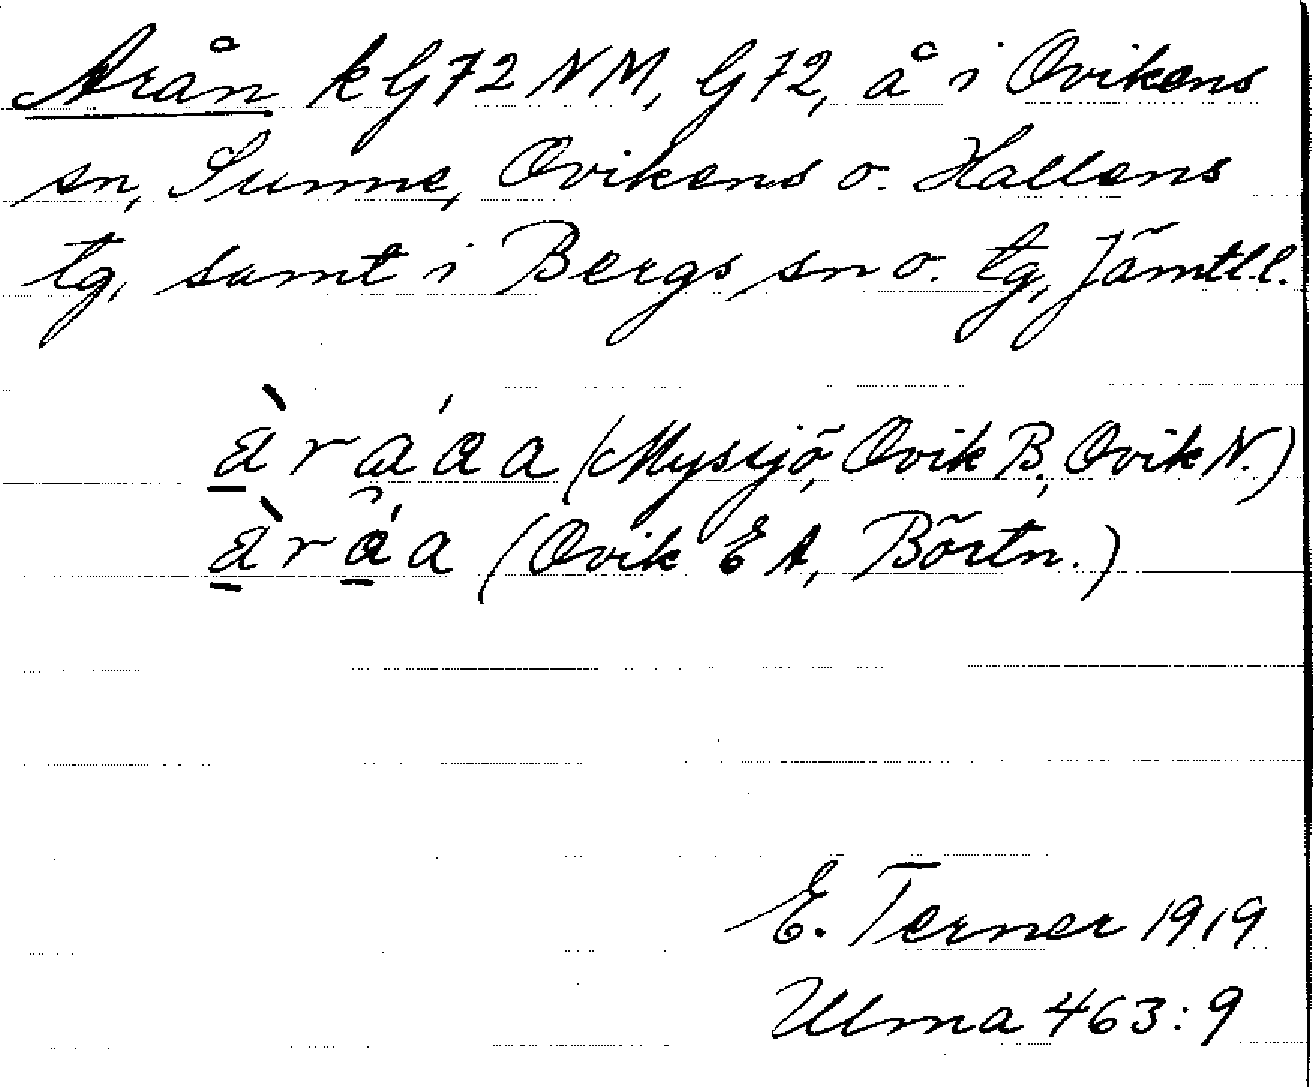 Arån kG72NM, G72, å i Ovikens
sn, Sunne, Ovikens o. Hallens
tg, samt i Bergs sn o. tg, Jämtl.l.
àráaa (Myssjö, Ovik B, Ovik N.)
àráa (Ovik E A, Börtn.)
E. Terner 1919
Ulma 463:9